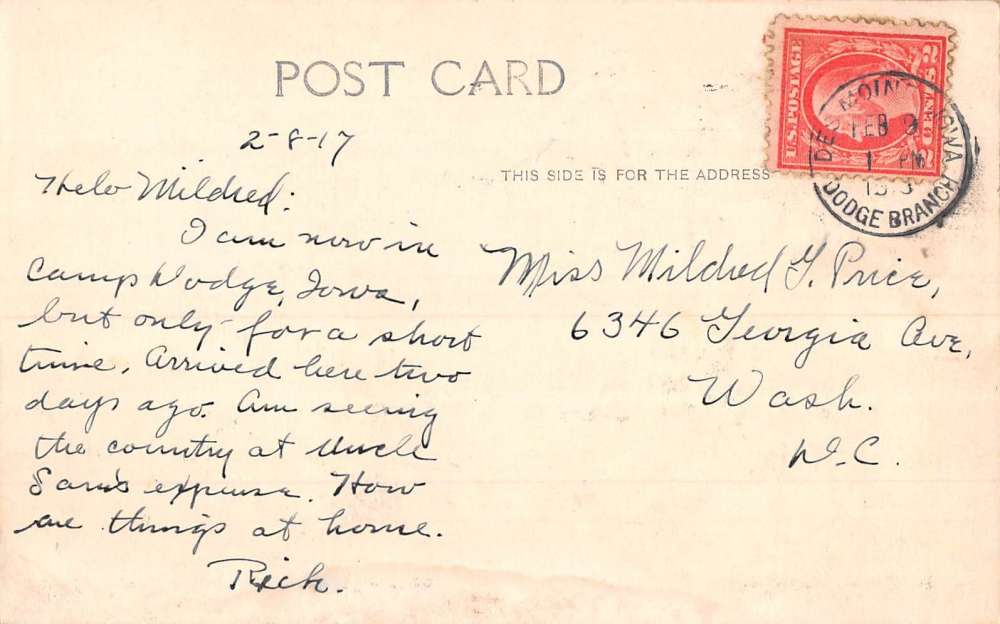 POST CARD
2-8-17
THIS SIDE IS FOR THE ADDRESS
U.S. POSTAGE
2 CENTS 2
DES MOINES IOWA
FEB 9
1 PM
DODGE BRANCH
Helo Mildred:
I am now in
Camp Dodge, Iowa,
but only for a short
time. Arrived here two
days ago. Am seeing
the country at Uncle
Sam's expense. How
are things at home.
Rich.
Miss Mildred G. Price,
6346 Georgia Ave,
Wash.
D.C.